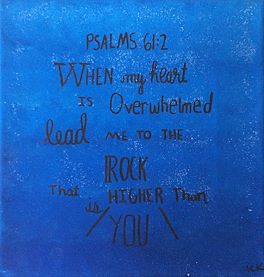 PSALMS 61:2
WHEN my heart
IS Overwhelmed
lead ME TO THE
ROCK
That is HIGHER Than
YOU
KK